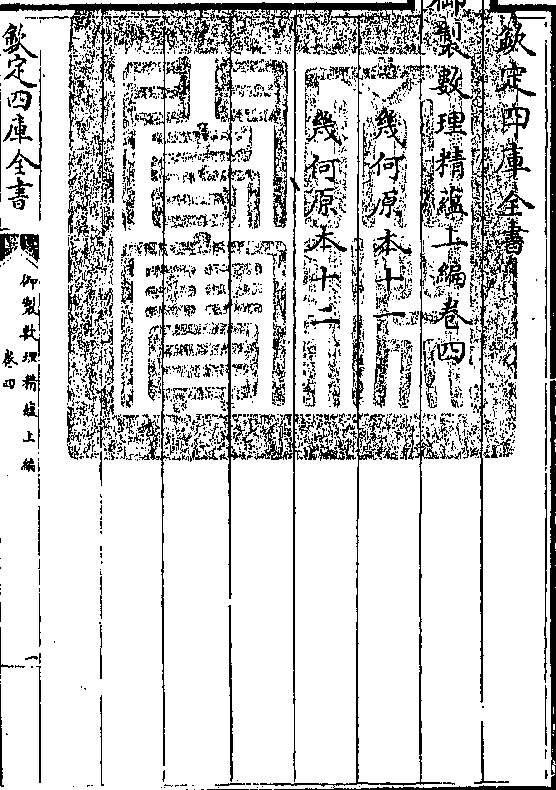 欽定四庫全書
御製數理精蘊上編卷四
幾何原本十一
幾何原本十二
欽定四庫全書
御製數理精蘊上編
卷四
一